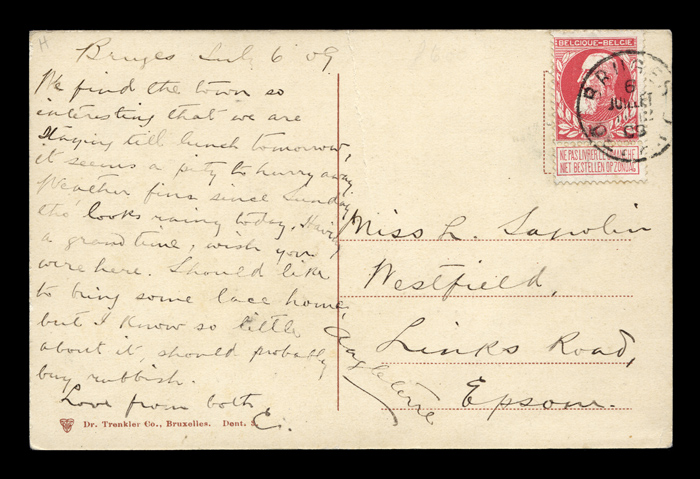 Bruges July 6 09
We find the town so
interesting that we are
staying till lunch tomorrow,
it seems a pity to hurry away.
Weather fine since Sunday
tho' looks rainy today. Having
a grand time, wish you
were here. Should like
to bring some lace home,
but I know so little
about it, should probably
buy rubbish.
Love from both
E.
Dr. Trenkler Co., Bruxelles. Dent. S.
BELGIQUE-BELGIË
NE PAS LIVRER LE DIMANCHE
NIET BESTELLEN OP ZONDAG
BRUGES
6
JUILLET
09
Miss L.
Westfield,
Links Road,
Epsom.
Angleterre